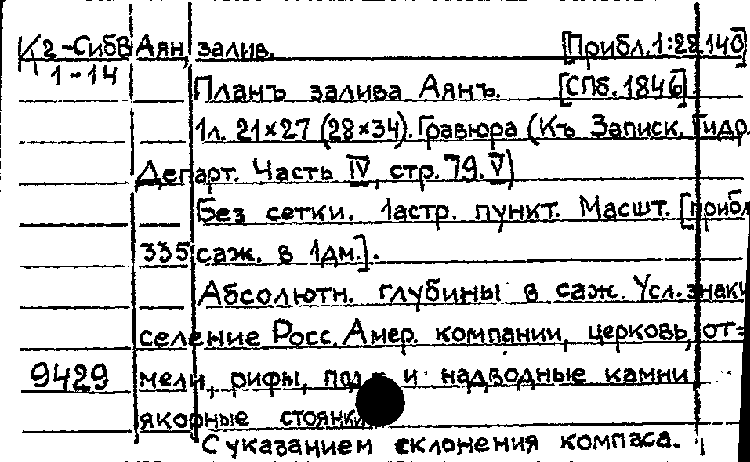 К 2-СибВ Аян, залив. [Прибл. 1:28 140]
1-14
Планъ залива Аянъ. [СПб. 1846].
1л. 21×27 (28×34). Гравюра (Къ Записк. Гидр.
Департ. Часть IV, стр. 79. V)
Без сетки. 1 астр. пункт. Масшт. [прибл
335 саж. в 1 дм.].
Абсолютн. глубины в саж. Усл. знаки
селение Росс. Амер. компании, церковь, от=
9429 мели, рифы, и надводные камни
якорные стоянки
С указанием склонения компаса.